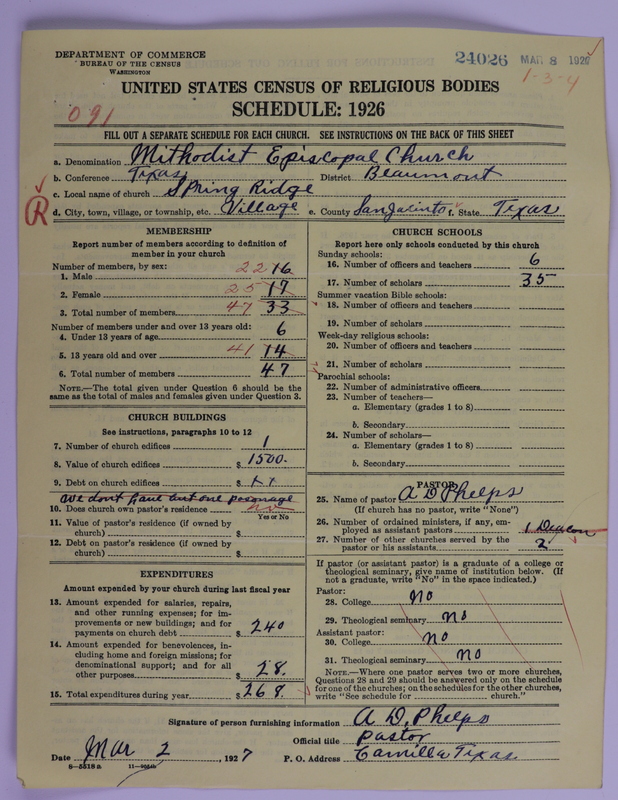 DEPARTMENT OF COMMERCE
BUREAU OF THE CENSUS
WASHINGTON
24026 MAR 8 1927
1-3-4
UNITED STATES CENSUS OF RELIGIOUS BODIES
SCHEDULE: 1926
091
FILL OUT A SEPARATE SCHEDULE FOR EACH CHURCH. SEE INSTRUCTIONS ON THE BACK OF THIS SHEET
a. Denomination Mithodist Episcopal Church
b. Conference Texas District Beaumont
c. Local name of church Spring Ridge
R d. City, town, village, or township, etc. Village e. County San Jacinto f. State Texas
MEMBERSHIP
Report number of members according to definition of
member in your church
Number of members, by sex:
1. Male 22 16
2. Female 25 17
3. Total number of members 47 33
Number of members under and over 13 years old:
4. Under 13 years of age 6
5. 13 years old and over 41 14
6. Total number of members 47
NOTE.—The total given under Question 6 should be the
same as the total of males and females given under Question 3.
CHURCH BUILDINGS
See instructions, paragraphs 10 to 12
7. Number of church edifices 1
8. Value of church edifices $ 1500.
9. Debt on church edifices $
we dont have but one pesonage
10. Does church own pastor's residence no
Yes or No
11. Value of pastor's residence (if owned by
church) $
12. Debt on pastor's residence (if owned by
church) $
EXPENDITURES
Amount expended by your church during last fiscal year
13. Amount expended for salaries, repairs,
and other running expenses; for im-
provements or new buildings; and for
payments on church debt $ 240
14. Amount expended for benevolences, in-
cluding home and foreign missions; for
denominational support; and for all
other purposes $ 28.
15. Total expenditures during year $ 268.
CHURCH SCHOOLS
Report here only schools conducted by this church
Sunday schools:
16. Number of officers and teachers 6
17. Number of scholars 35
Summer vacation Bible schools:
18. Number of officers and teachers
19. Number of scholars
Week-day religious schools:
20. Number of officers and teachers
21. Number of scholars
Parochial schools:
22. Number of administrative officers
23. Number of teachers—
a. Elementary (grades 1 to 8)
b. Secondary
24. Number of scholars—
a. Elementary (grades 1 to 8)
b. Secondary
PASTOR
25. Name of pastor A D Phelps
(If church has no pastor, write "None")
26. Number of ordained ministers, if any, em-
ployed as assistant pastors 1 Deacon
27. Number of other churches served by the
pastor or his assistants 2
If pastor (or assistant pastor) is a graduate of a college or
theological seminary, give name of institution below. (If
not a graduate, write "No" in the space indicated.)
Pastor:
28. College No
29. Theological seminary No
Assistant pastor:
30. College No
31. Theological seminary No
NOTE.—Where one pastor serves two or more churches,
Questions 28 and 29 should be answered only on the schedule
for one of the churches; on the schedules for the other churches,
write "See schedule for church."
Signature of person furnishing information A D. Phelps
Official title pastor
Date Mar 2, 1927 P. O. Address Camilla Texas
8—5518 a